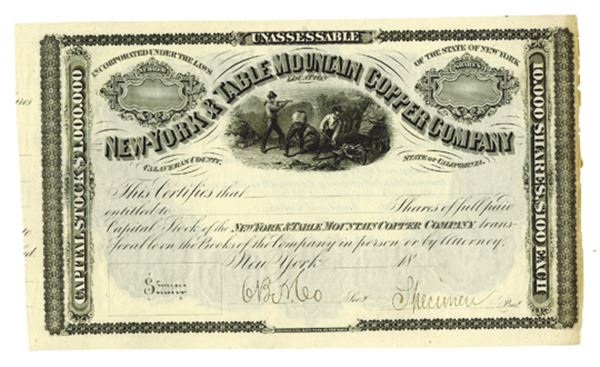 UNASSESSABLE
INCORPORATED UNDER THE LAWS
OF THE STATE OF NEW YORK
NUMBER
SHARES
LOCATION
NEW-YORK & TABLE MOUNTAIN COPPER COMPANY
CALAVERAS COUNTY,
STATE OF CALIFORNIA.
CAPITAL STOCK $1,000,000
10,000 SHARES $100 EACH
This Certifies that
Shares of full paid
entitled to
Capital Stock of the NEW YORK & TABLE MOUNTAIN COPPER COMPANY trans-
feral on the Books of the Company in person or by Attorney.
New York 18
Specimen Prest